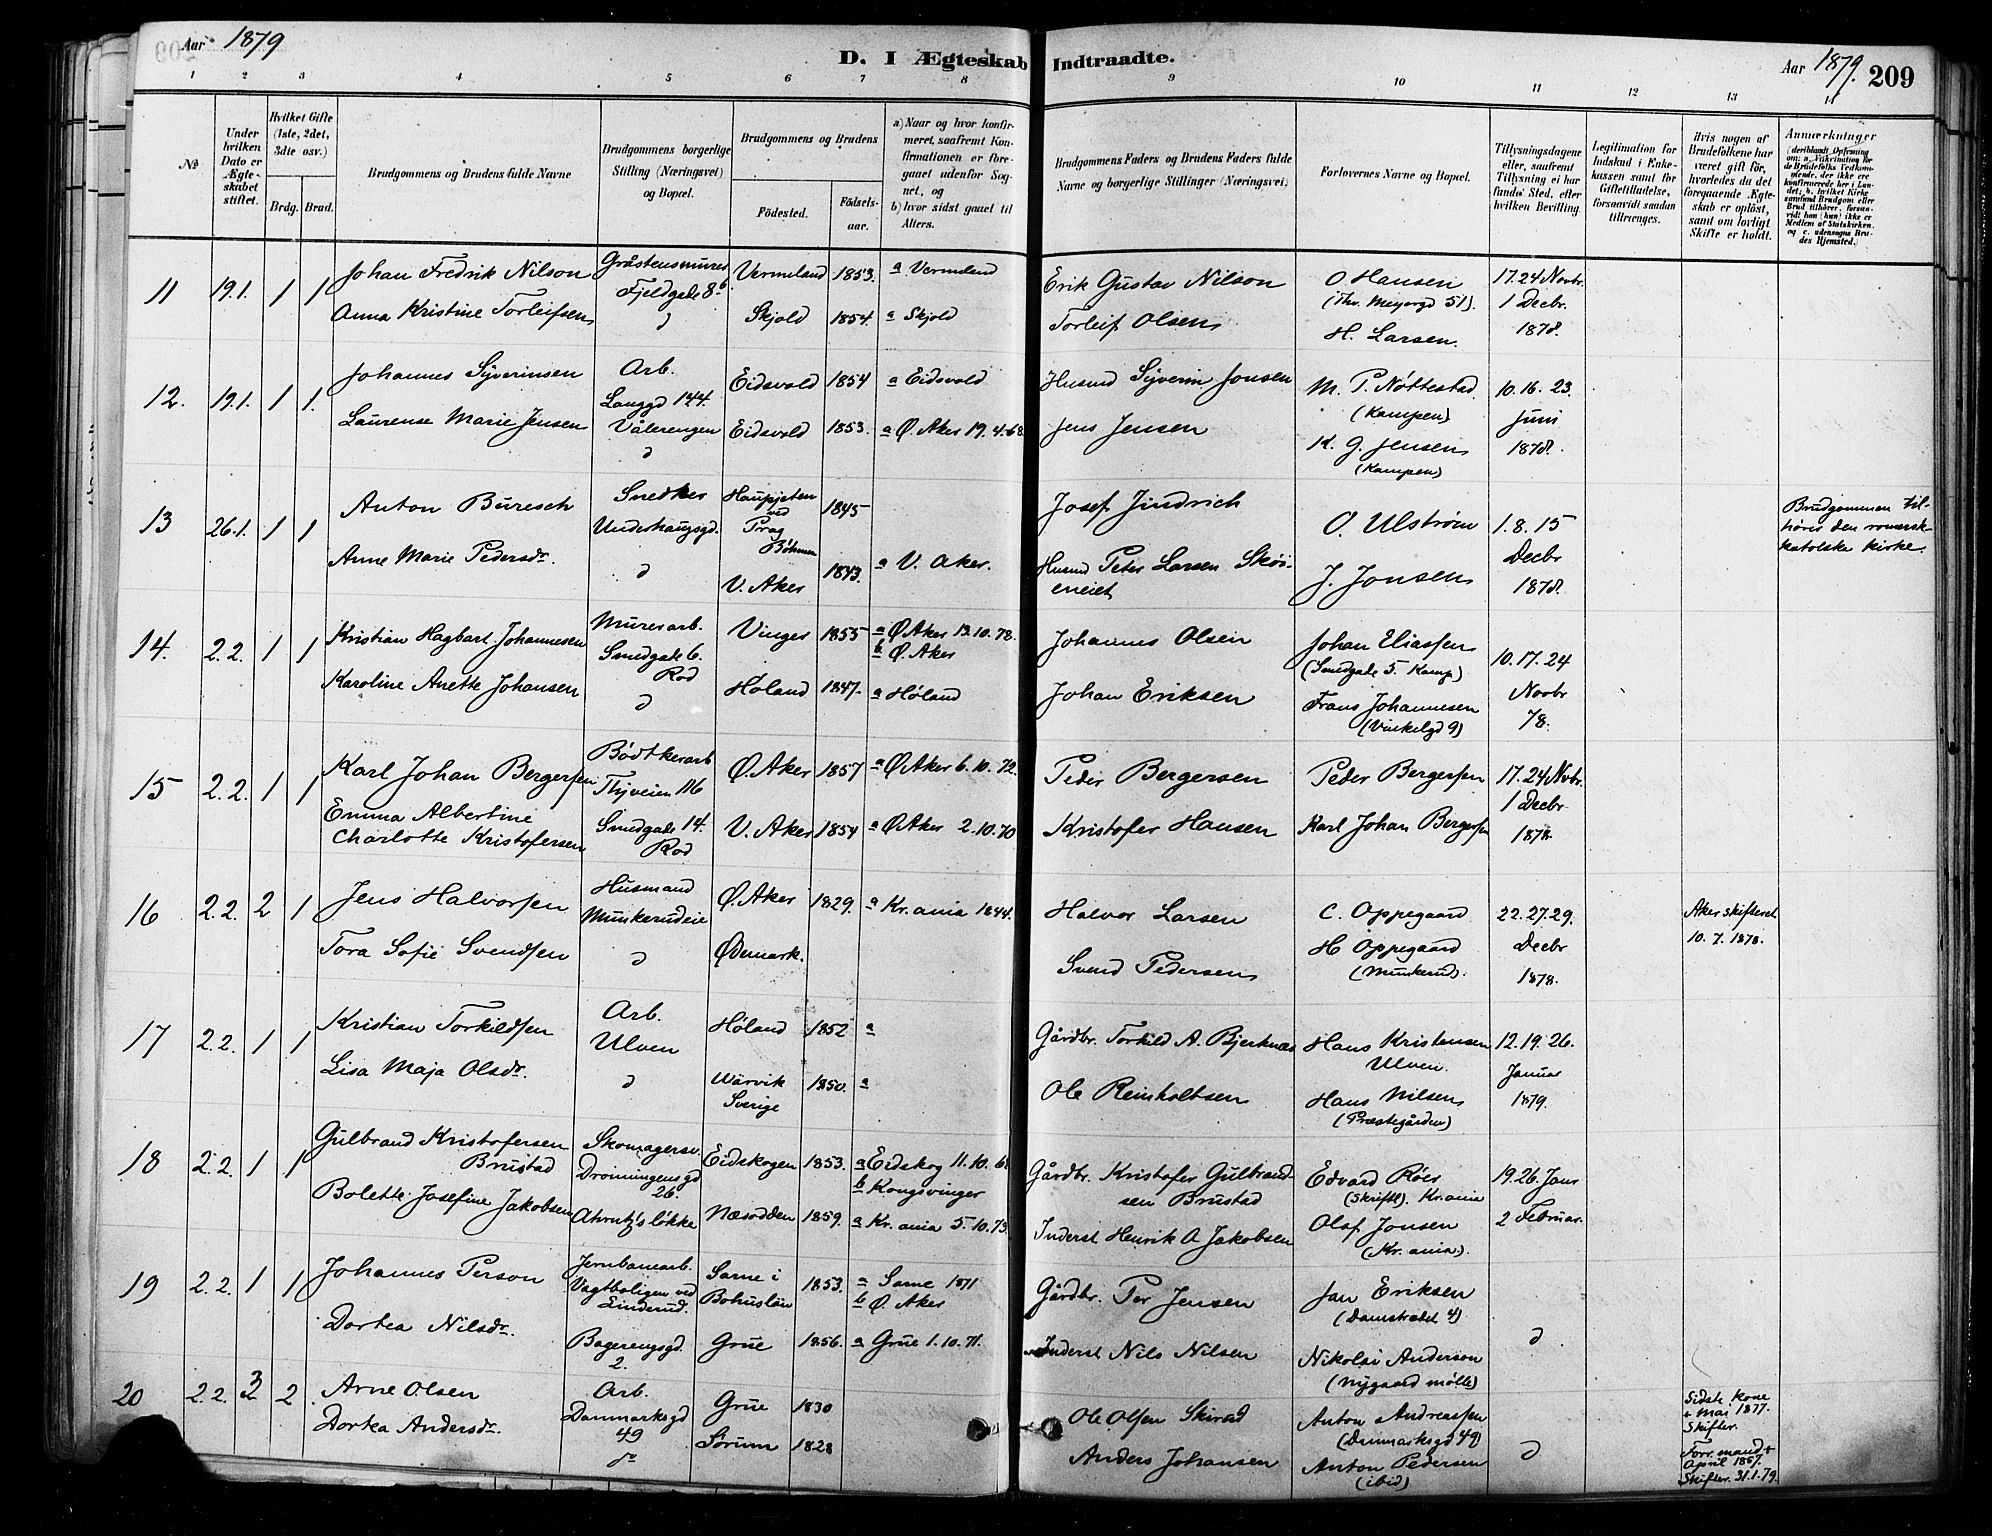 Aar 1879
D. I Ægteskab Indtraadte.
Aar 1879. 209
1 2 3 4 5 6 7 8 9 10 11 12 13 14
No
Under hvilken Dato er Ægteskabet stiftet.
Hvilket Gifte (1ste, 2det, 3die osv.)
Brdg. Brud.
Brudgommens og Brudens fulde Navne
Brudgommens borgerlige Stilling (Næringsvei) og Bopæl.
Brudgommens og Brudens
Fødested. Fødselsaar.
a) Naar og hvor konfirmeret, saafremt Konfirmationen er foregaaet udenfor Sognet, og
b) hvor sidst gaaet til Alters.
Brudgommens Faders og Brudens Faders fulde Navne og borgerlige Stillinger (Næringsvei)
Forlovernes Navne og Bopæl.
Tillysningsdagene eller, saafremt Tillysning ei har fundet Sted, efter hvilken Bevilling
Legitimation for Indskud i Enkekassen samt for Giftetilladelse, forsaavidt saadan tiltrænges.
Hvis nogen af Brudefolkene har været gift før, hvorledes da det foregaaende Ægteskab er opløst, samt om lovligt Skifte er holdt.
Anmærkninger
11 19.1. 1 1
Johan Fredrik Nilson
Gråstensmurer
Fjeldgade 8b
Vermeland 1853. a Vermland
Erik Gustav Nilson
O Hansen
(Thv. Meyersgd 51).
17. 24 Novbr.
1 Decbr.
1878.
Anna Kristine Torleifsen
d
Skjold 1854. a Skjold
Torleif Olsen
H. Larsen.
12. 19.1. 1 1.
Johannes Syverinsen
Arb.
Langgd 144.
Vålerengen
Eidsvold 1854 a Eidsvold
Husmd Syverin Jonsen
M. P. Nøttestad
(Kampen)
10. 16. 23
Juni
1878.
Laurense Marie Jensen
d
Eidsvold 1853. a Ø. Aker 19.4.68.
Jens Jensen
K. G. Jensen
(Kampen)
13 26.1. 1 1
Anton Buresch
Snedker
Underhaugsgd.
ved
Prag
Bøhmen
1845
Josef Jindrich
O. Ulstrøm
1. 8. 15
Decbr
1878.
Brudgommen til-
hører den romersk-
katolske kirke.
Anne Marie Pedersdr.
d
V. Aker 1843. a V. Aker.
Husmd Peter Larsen Skøi-
eneiet
J. Jonsen
14. 2.2. 1 1
Kristian Hagbart Johannesen
Murerarb.
Smedgade 6.
Rod
Vinger 1855 a Ø Aker 13.10.72.
b Ø. Aker
Johannes Olsen
Johan Eliassen
(Smedgade 5. Kamp)
10. 17. 24
Novbr
78.
Karoline Anette Johansen
d
Høland 1847. a Høland
Johan Eriksen
Frans Johannesen
(Vinkelgd 9)
15 2.2. 1 1
Karl Johan Bergersen
Bødtkerarb
Thveien 116
Ø. Aker 1857 a Ø Aker 6.10.72.
Peder Bergersen
Peder Bergersen
17. 24 Novbr.
1 Decbr
1878.
Emma Albertine
Charlotte Kristofersen
Smedgade 14.
Rod
V. Aker 1854 a Ø Aker 2.10.70
Kristofer Hansen
Karl Johan Bergersen
16 2.2. 2 1
Jens Halvorsen
Husmand
Munkerudeie
Ø. Aker 1829. a Kr.ania 1844.
Halvor Larsen
C. Oppegaard
22. 27. 29.
Decbr
1878.
Aker skifteret
10.7.1878.
Tora Sofie Svendsen
d
Ødemark.
Svend Pedersen
H Oppegaard
(Munkerud).
17 2.2. 1 1
Kristian Torkildsen
Arb.
Ulven
Høland 1852 a
Gårdbr. Torkild A. Bjerknæs
Hans Kristensen
Ulven.
12. 19. 26.
Januar
1879.
Lisa Maja Olsdr.
d
Wärvik
Sverige
1850. a
Ole Reinholtsen
Hans Nilsen
(Præstegården)
18 2.2. 1 1
Gulbrand Kristofersen
Brustad
Skomagersv.
Dronningensgd
26.
Eidskogen 1853. a Eidskog 11.10.6
b Kongsvinger
Gårdbr. Kristofer Gulbrand-
sen Brustad
Edvard Röer
(Skriftl). Kr.ania
19. 26. Janr
2 Februar.
Bolette Josefine Jakobsen
Ahrntz's løkke
Næsodden 1859. a Kr.ania 5.10.73.
Inderst Henrik A Jakobsen
Olaf Jonsen
(Kr.ania).
19 2.2. 1 1
Johannes Person
Jernbanearb.
Vagtboligen ved
Linderud.
Sarne i
Bohuslän
1853. a Sarne 1871
b Ø. Aker
Gårdbr. Per Jensen
Jan Eriksen
(Damstrædet 4)
d
Dortea Nilsdr.
Bagerengsgd.
2.
Grue 1856. a Grue 1.10.71.
Inderst Nils Nilsen
Nikolai Anderson
(Nygaard mølle)
20 2.2. 3 2
Arne Olsen
Arb.
Danmarksgd
49
Grue 1830
Ole Olsen
Anton Andreassen
(Danmarksgd 49)
d
Sidste kone
+ Mai 1877.
Skifter.
Dortea Andersdr.
do
Sørum 1828
Anders Johansen
Anton Pedersen
(ibid)
Forr. mand +
April 1867.
Skifter. 31.1.79.